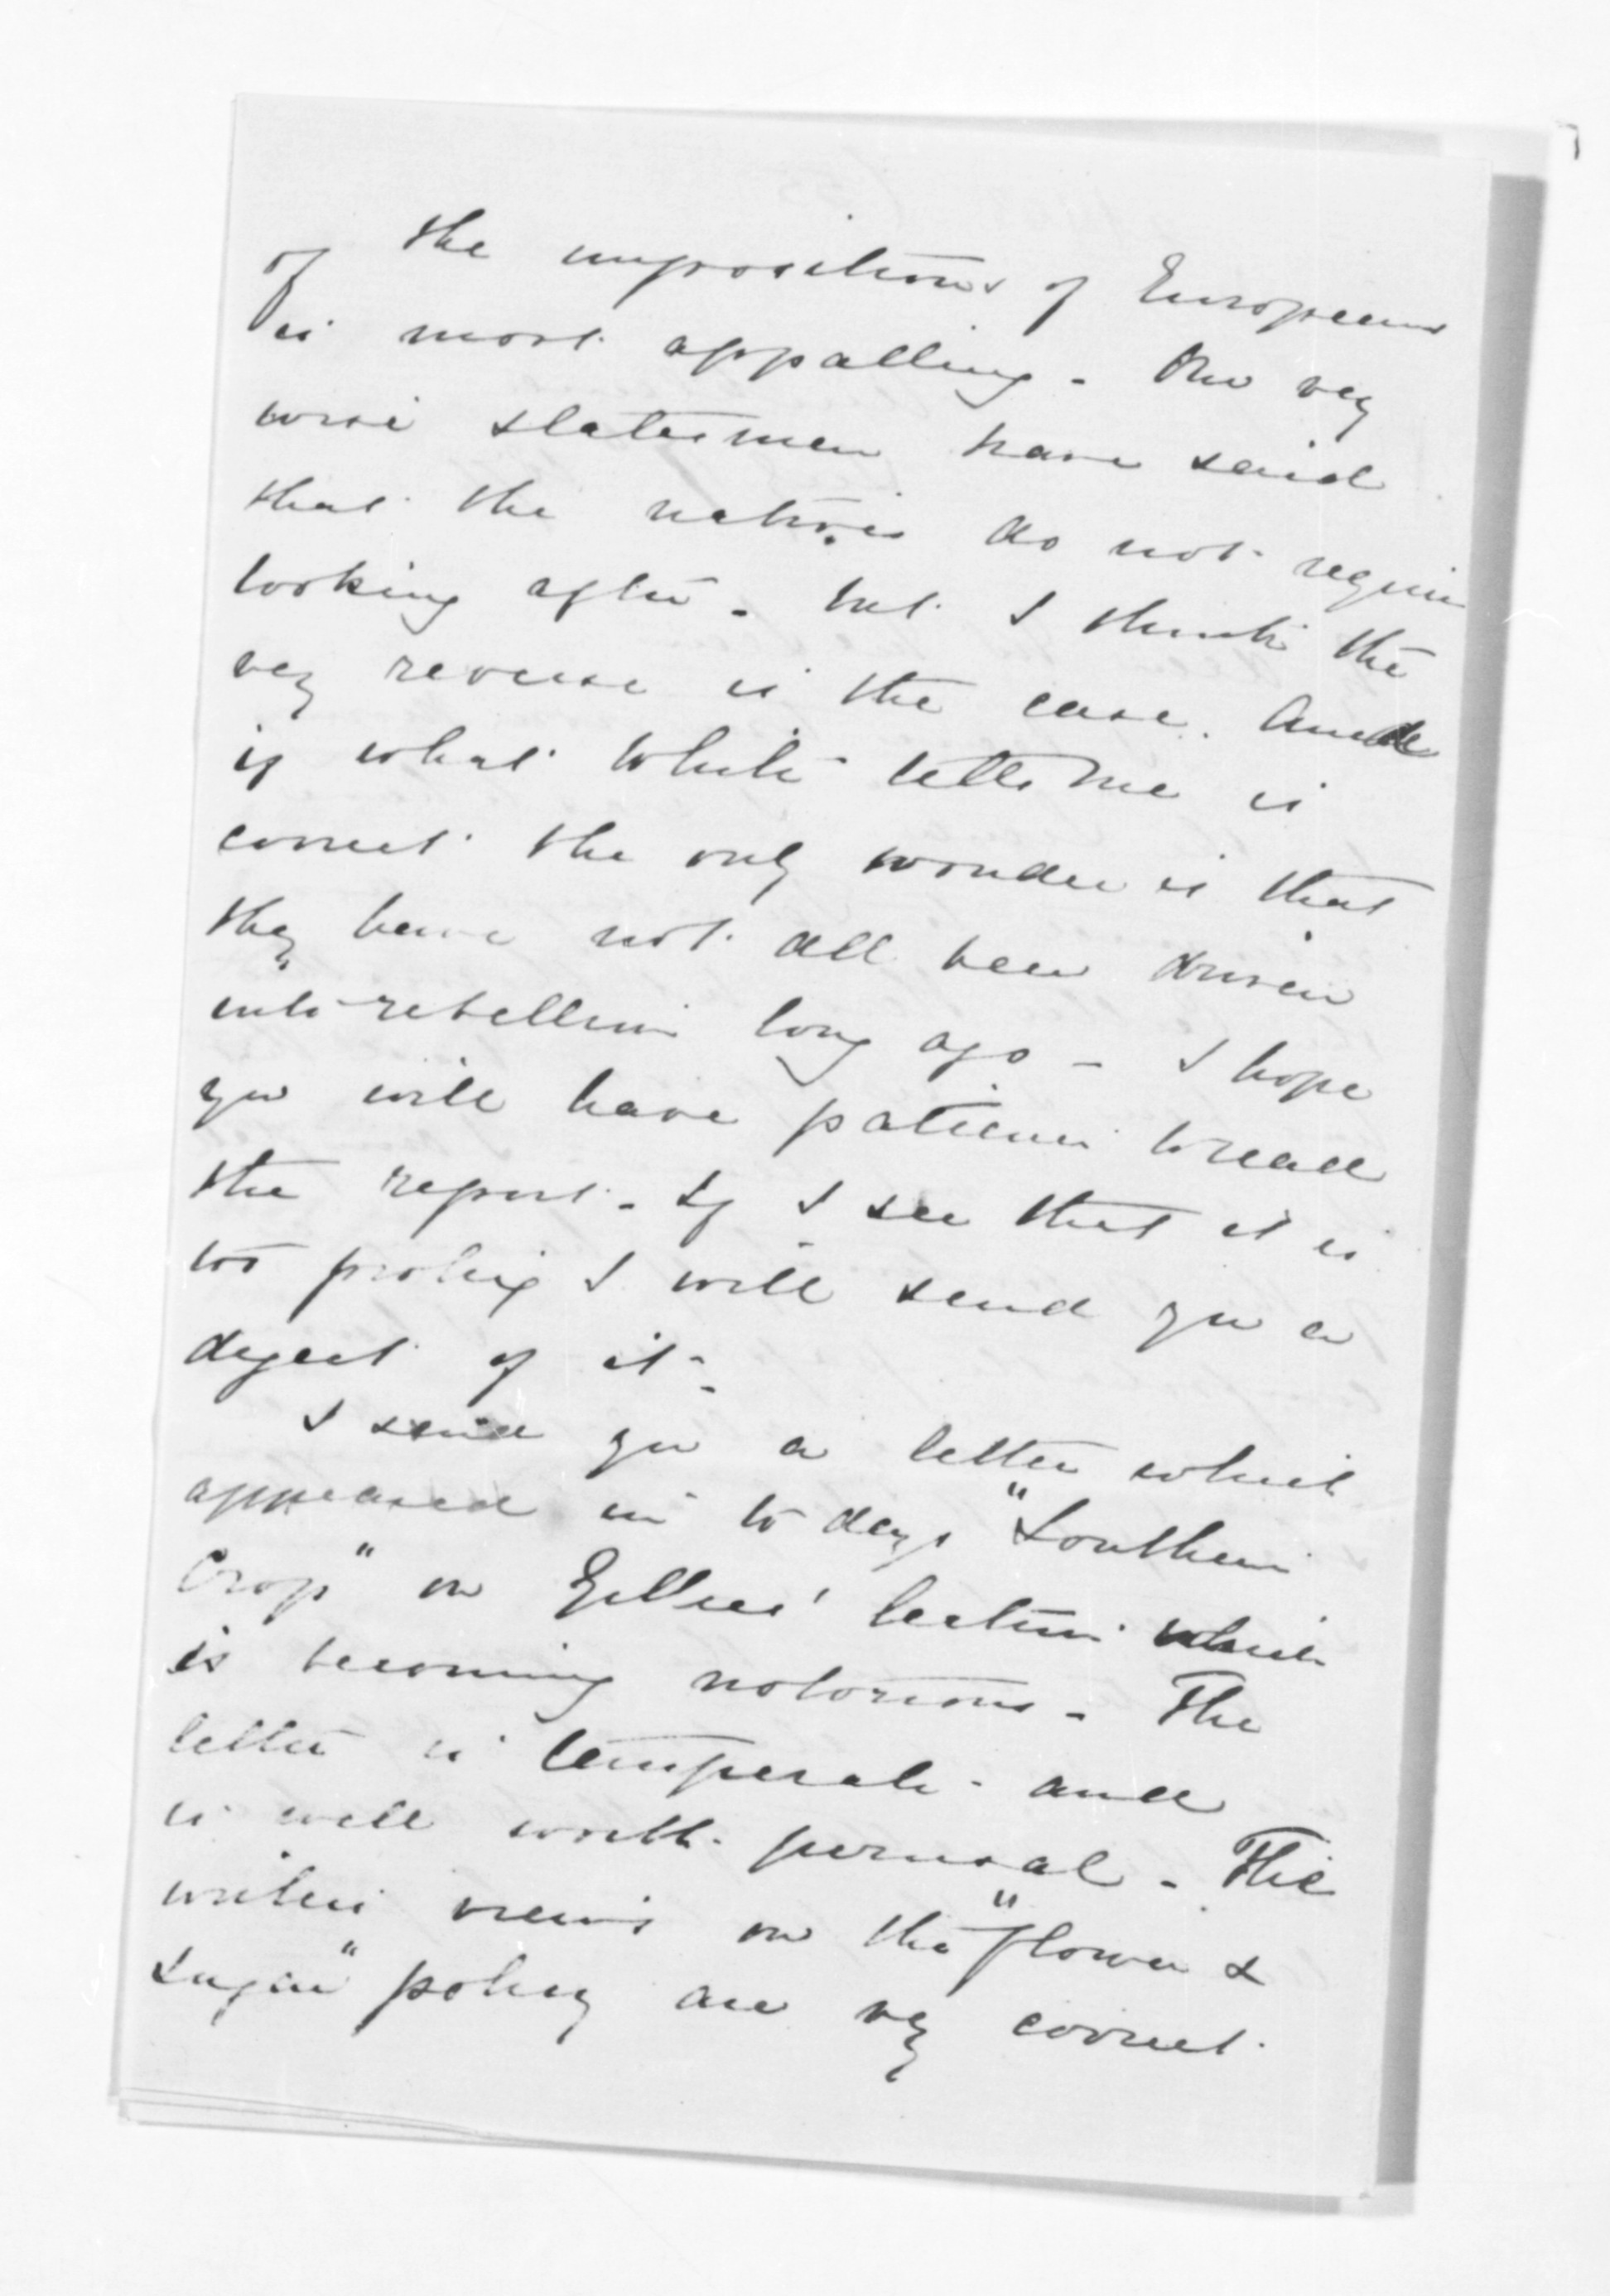 of the impositions of Europeans
is most appalling - Our very
wise statesmen have said
that the natives do not require
looking after - but I think the
very reverse is the case. And
if what White tells me is
correct the only wonder is that
they have not all been driven
into rebellion long ago - I hope
you will have patience to read
the report - If I see that it is
too prolix I will send you a
digest of it -
I send you a letter which
appeared in to days "Southern
Crop" on lecture which
is becoming notorious - The
letter is temperate and
is well worth perusal - The
writers views on the "flower &
sugar" policy are very correct.